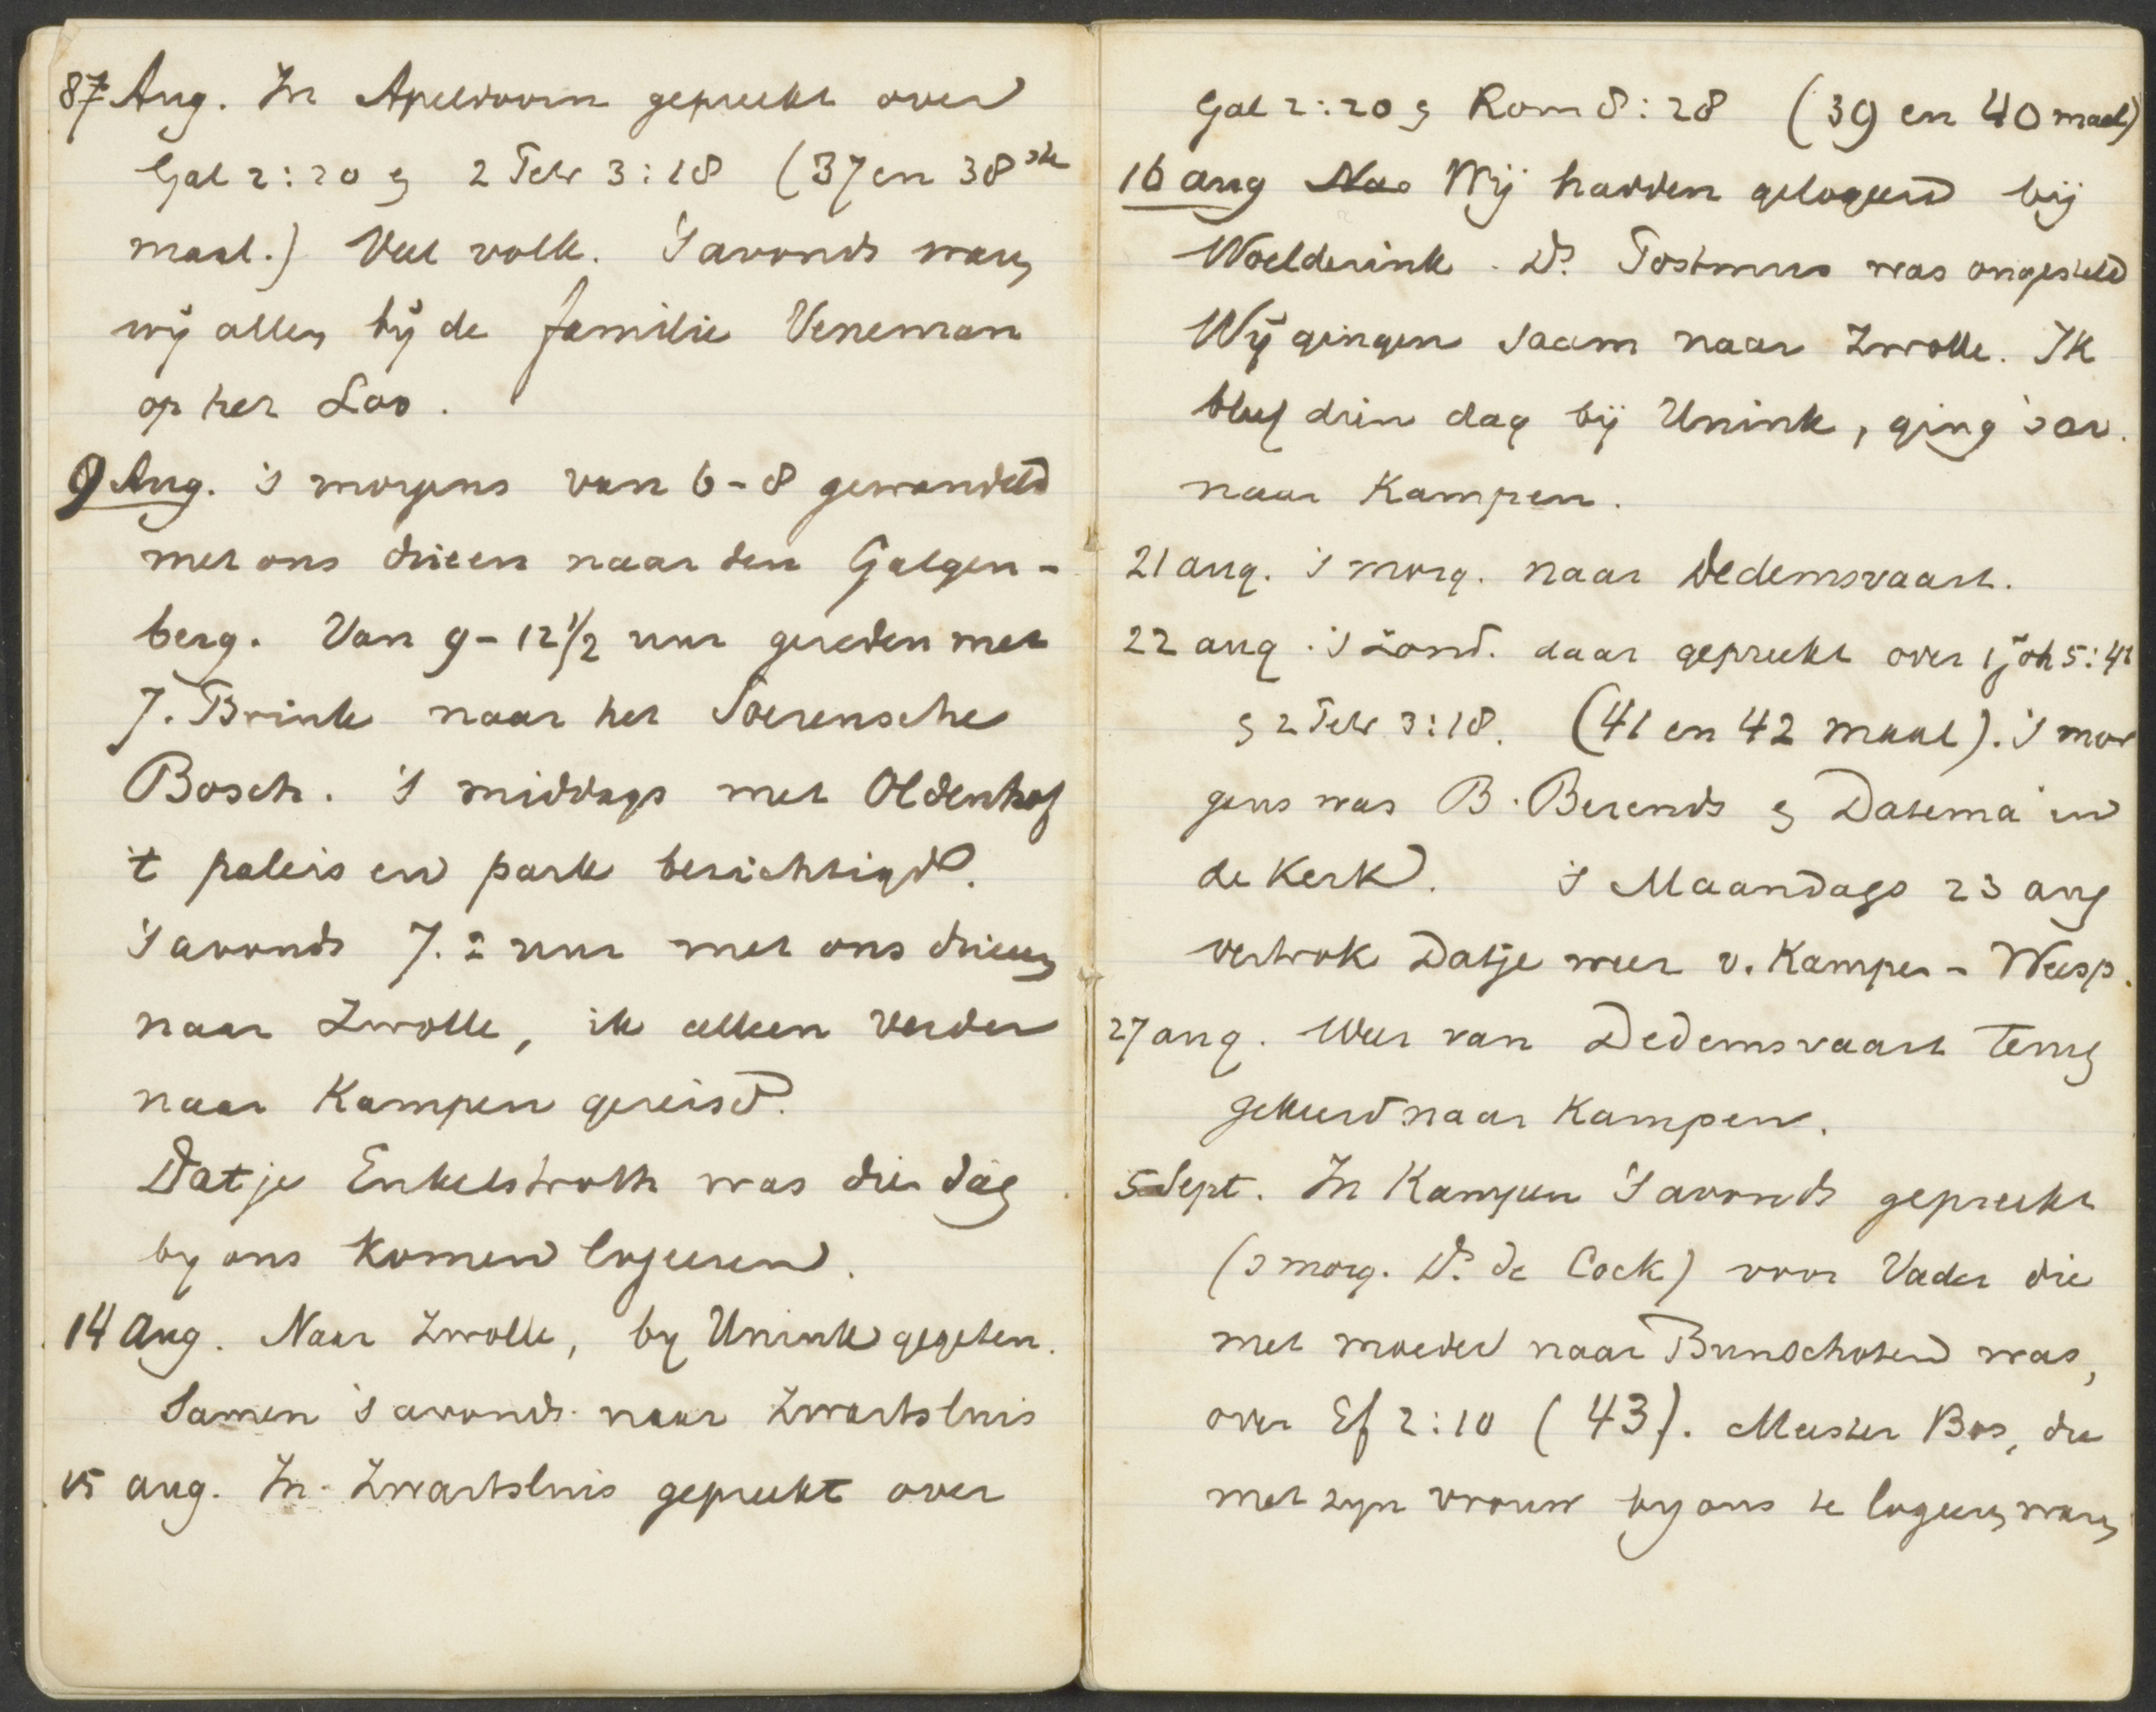 87 Aug. In Apeldoorn gepreekt over
Gal 2:20 & 2 Petr 3:18 (37 en 38ste
maal.) Veel volk. 's avonds waren
wij allen bij de familie Veneman
op het Loo.
9 Aug. 's morgens van 6-8 gewandeld
met ons drieen naar den Galgen-
berg. Van 9-12 1/2 uur gereden met
J. Brink naar het Soerensche
Bosch. 's middags met Oldenhof
't paleis en park bezichtigd.
's avonds 7.2 uur met ons drieen
naar Zwolle, ik alleen verder
naar Kampen gereisd.
Datje Enkelstroth was die dag
by ons komen logeeren.
14 Aug. Naar Zwolle, by Unink gegeten.
Samen 's avonds naar Zwartsluis
15 aug. In Zwartsluis gepreekt over
Gal 2:20 & Rom 8:28 (39 en 40 maal)
16 aug Na Wij hadden gelogeerd bij
Woelderink. Ds. Postmus was ongesteld
Wij gingen saam naar Zwolle. Ik
bleef dien dag bij Unink, ging 's av.
naar Kampen.
21 aug. 's morg. naar Dedemsvaart.
22 aug. 's Zond. daar gepreekt over 1 Joh 5:4b
& 2 Petr 3:18. (41 en 42 maal). 's mor
gens was B. Berends & Datema in
de Kerk. 's Maandags 23 aug
vertrok Datje weer v. Kampen - Weesp.
27 aug. Weer van Dedemsvaart terug
gekeerd naar Kampen.
5 Sept. In Kampen 's avonds gepreekt
(s morg. Ds. de Cock) voor Vader die
met moeder naar Bunschoten was,
over Ef 2:10 (43). Meester Bos, die
met zyn vrouw by ons te logeeren waren